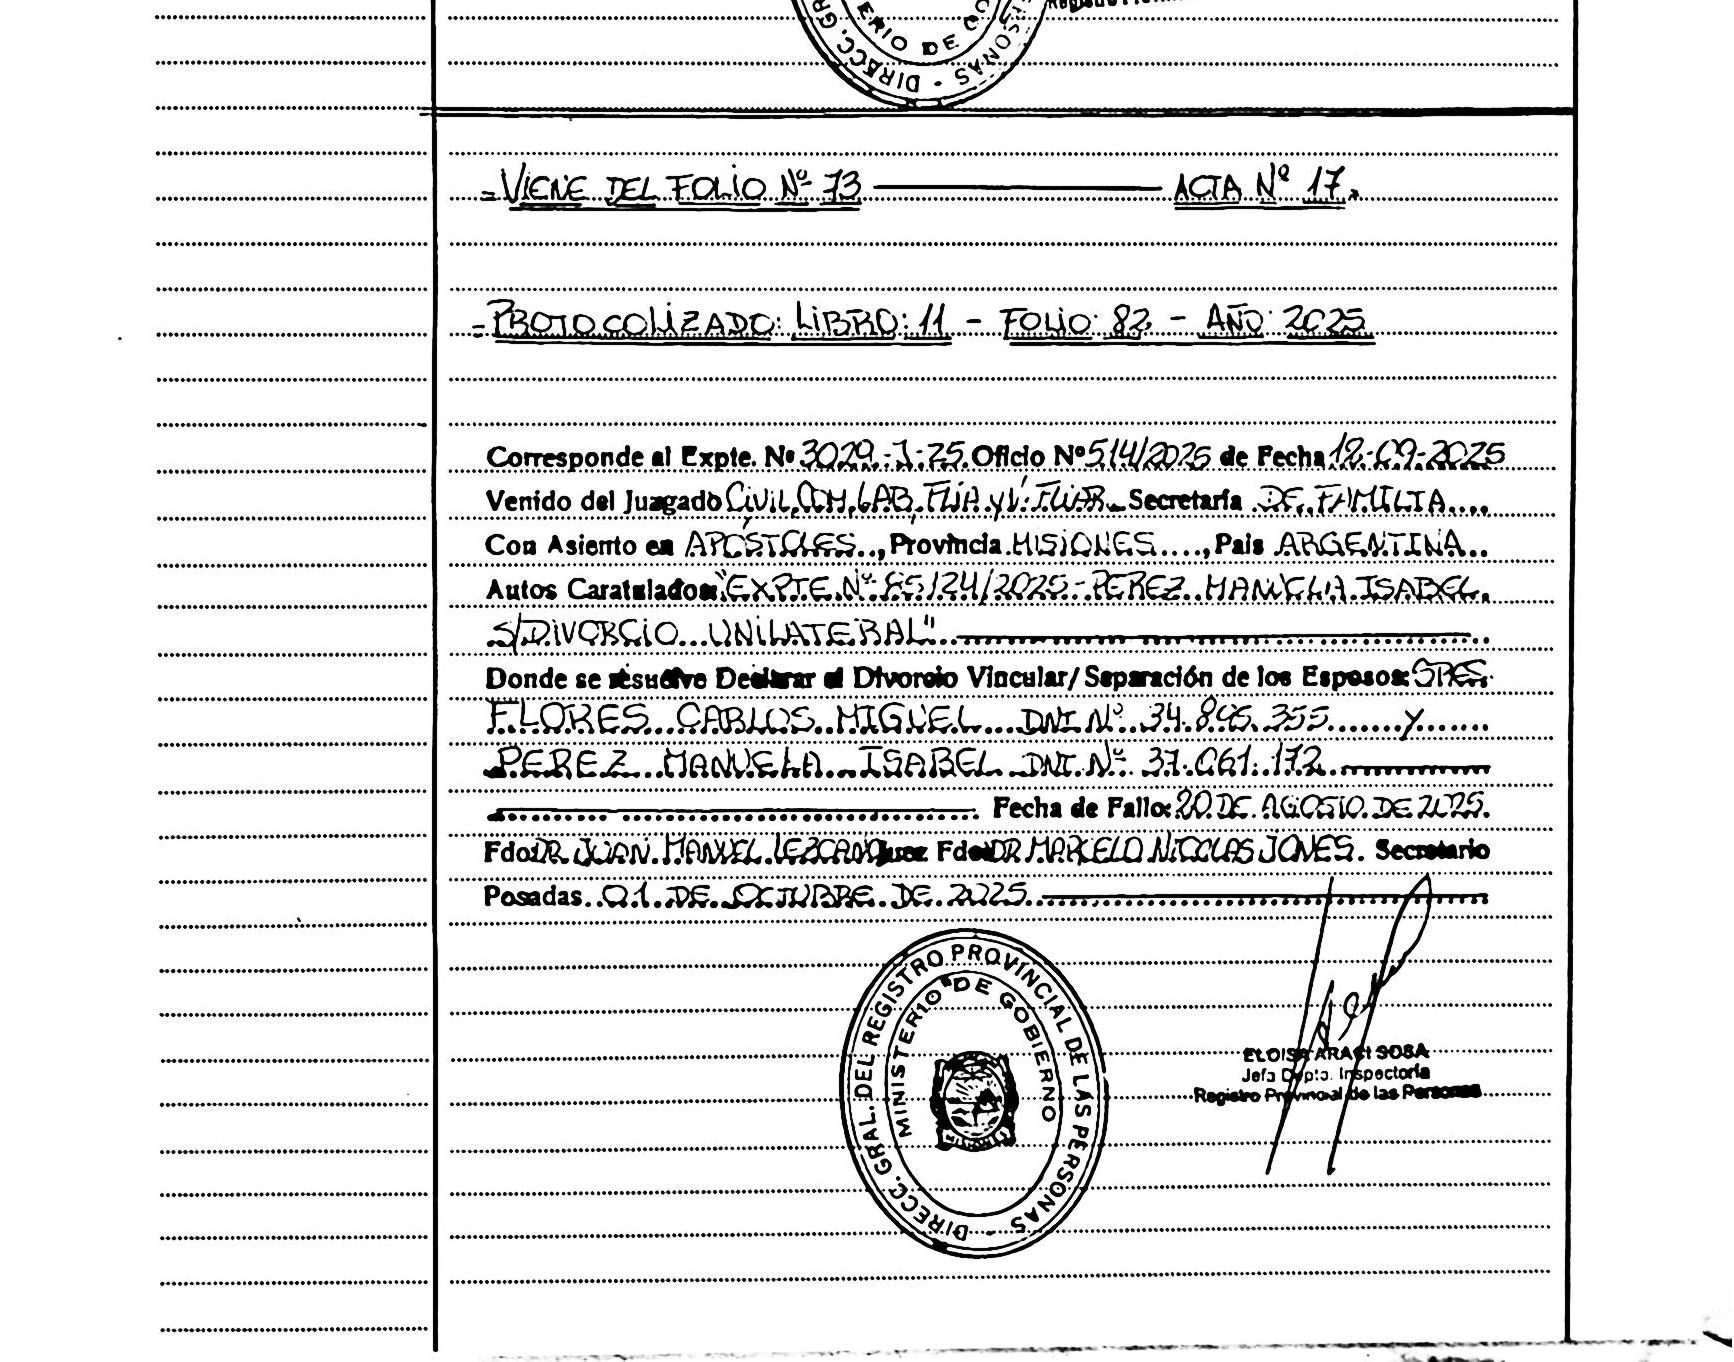 MINISTERIO DE GO
DIRECC. GR
SONAS -
= VIENE DEL FOLIO Nº 73 ACTA Nº 17.
= PROTOCOLIZADO: LIBRO: 11 - FOLIO: 82 - AÑO: 2025
Corresponde al Expte. Nº 3029-J-25 Oficio Nº 514/2025 de Fecha 18-09-2025
Venido del Juzgado CIVIL, COM, LAB, FLIA y V. FLIAR Secretaría DE FAMILIA
Con Asiento en APÓSTOLES, Provincia MISIONES, País ARGENTINA
Autos Caratulados: "EXPTE Nº 85124/2025 - PEREZ MANUELA ISABEL
S/DIVORCIO UNILATERAL"
Donde se resuelve Declarar el Divorcio Vincular/ Separación de los Esposos: SRES
FLORES CARLOS MIGUEL DNI Nº 34.845.355 y
PEREZ MANUELA ISABEL DNI Nº 37.061.172
Fecha de Fallo: 20 DE AGOSTO DE 2025.
Fdo: DR. JUAN MANUEL LEZCANO Juez Fdo: DR MARCELO NICOLAS JONES. Secretario
Posadas 01 DE OCTUBRE DE 2025
DIRECC. GRAL. DEL REGISTRO PROVINCIAL DE LAS PERSONAS -
MINISTERIO DE GOBIERNO
ELOISA ARACI SOSA
Jefa Dpto. Inspectoría
Registro Provincial de las Personas